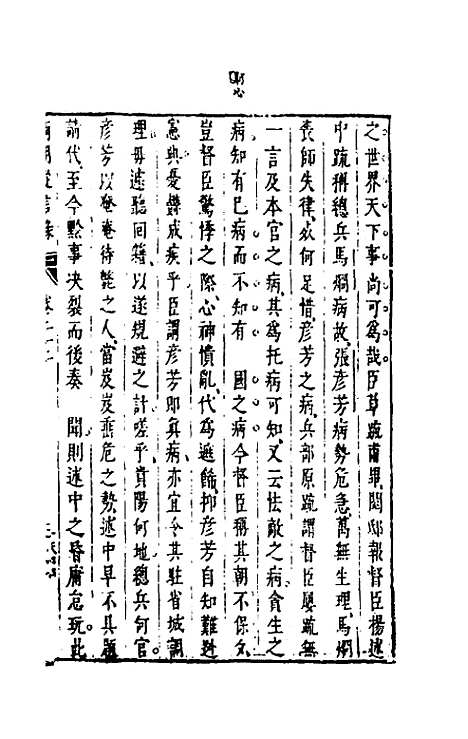 之世界天下事尚可為哉臣草疏甫畢閱邸報督臣楊述
中疏稱總兵馬烱病故張彦芳病勢危急萬無生理馬烱
喪師失律死何足惜彦芳之病兵部原疏謂督臣屢疏無
一言及本官之病其為托病可知又云怯敵之病貪生之
病知有已病而不知有　國之病今督臣稱其朝不保夕
豈督臣驚悸之際心神憒亂代為遮飾抑彦芳自知難逃
憲典憂鬱成疾乎臣謂彦芳即真病亦宜令其駐省城調
理毋遽聽回籍以遂規避之計嗟乎貴陽何地總兵何官
彦芳以奄奄待斃之人當岌岌垂危之勢述中早不具題
前代至今黔事决裂而後奏　聞則述中之昏庸怠玩此
兩朝從信錄　卷二二